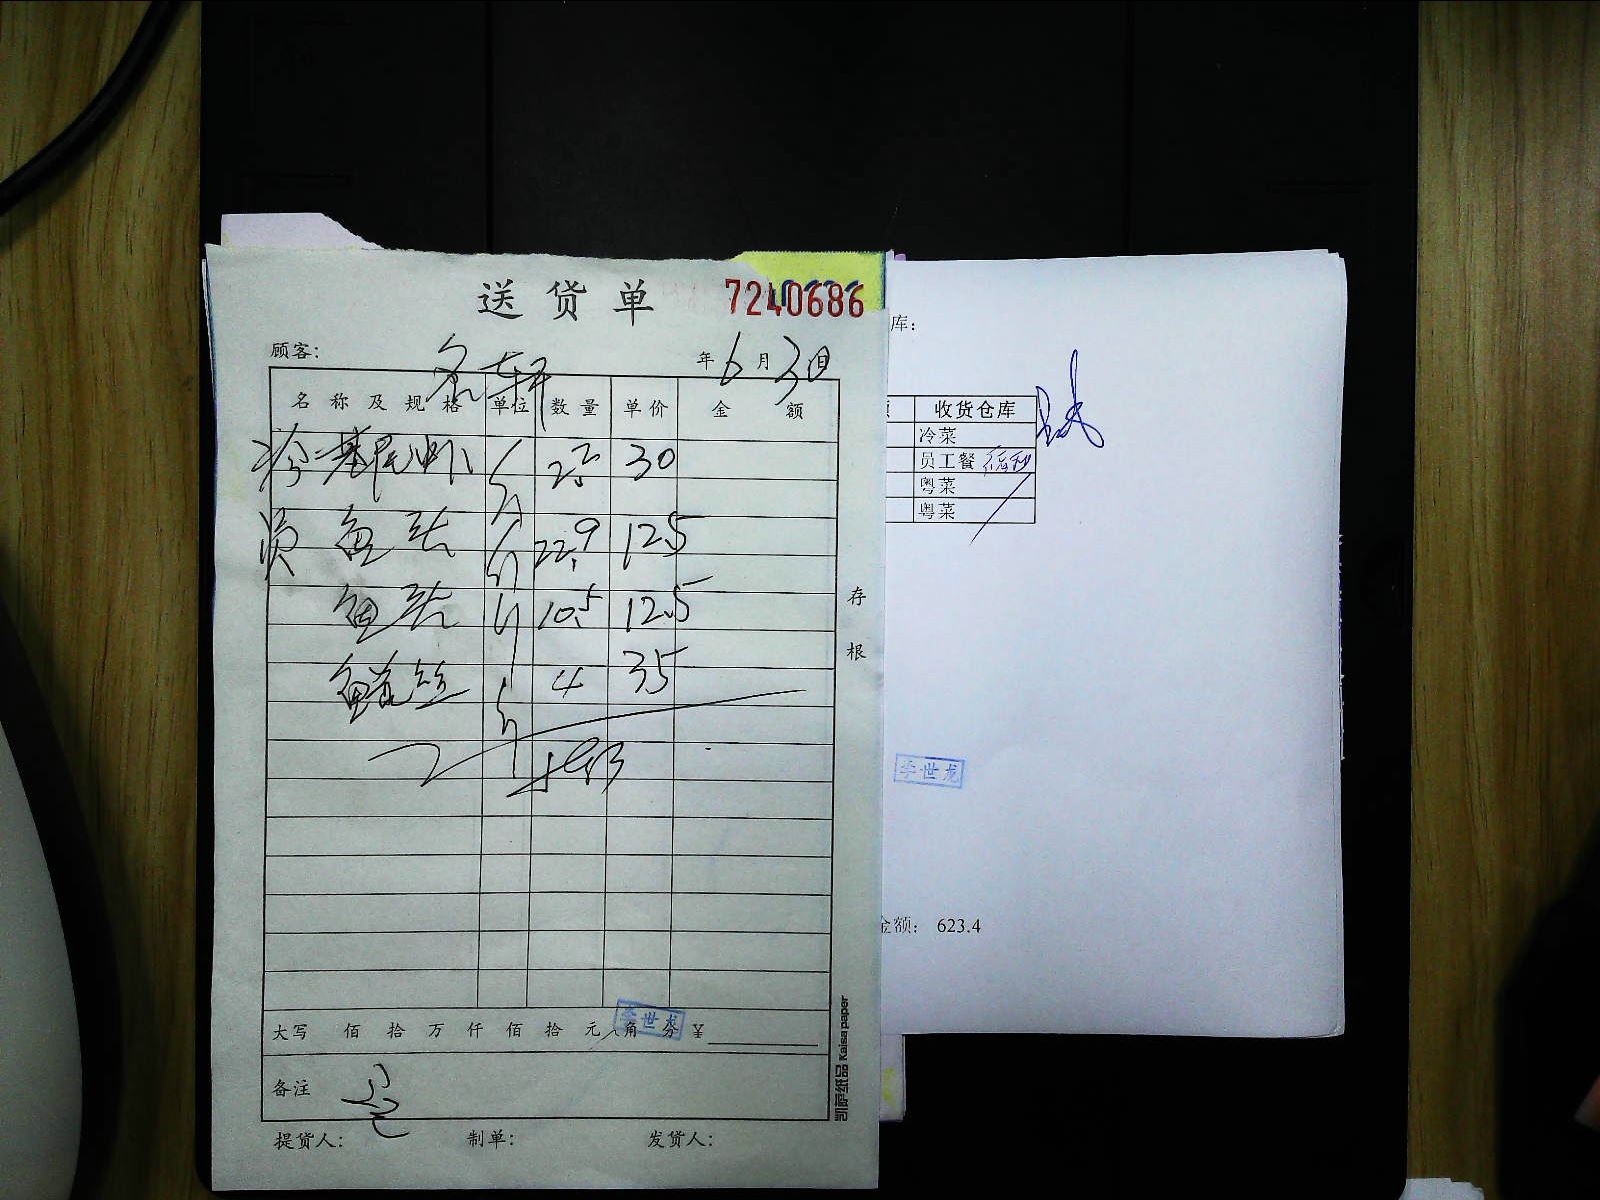 送货单 7240686
顾客: 名轩 年6月30日
名称及规格 单位 数量 单价 金额
冷 基尾虾 斤 2.5 30
员 鱼头 斤 22.9 12.5
鱼头 斤 10.5 12.5
鳝丝 斤 4 35
存根
大写 佰 拾 万 仟 佰 拾 元 角 分 ¥
李世龙
备注
提货人: 制单: 发货人:
凯萨纸品 Kaisa paper
库:
收货仓库
冷菜
员工餐
粤菜
粤菜
李世龙
金额: 623.4